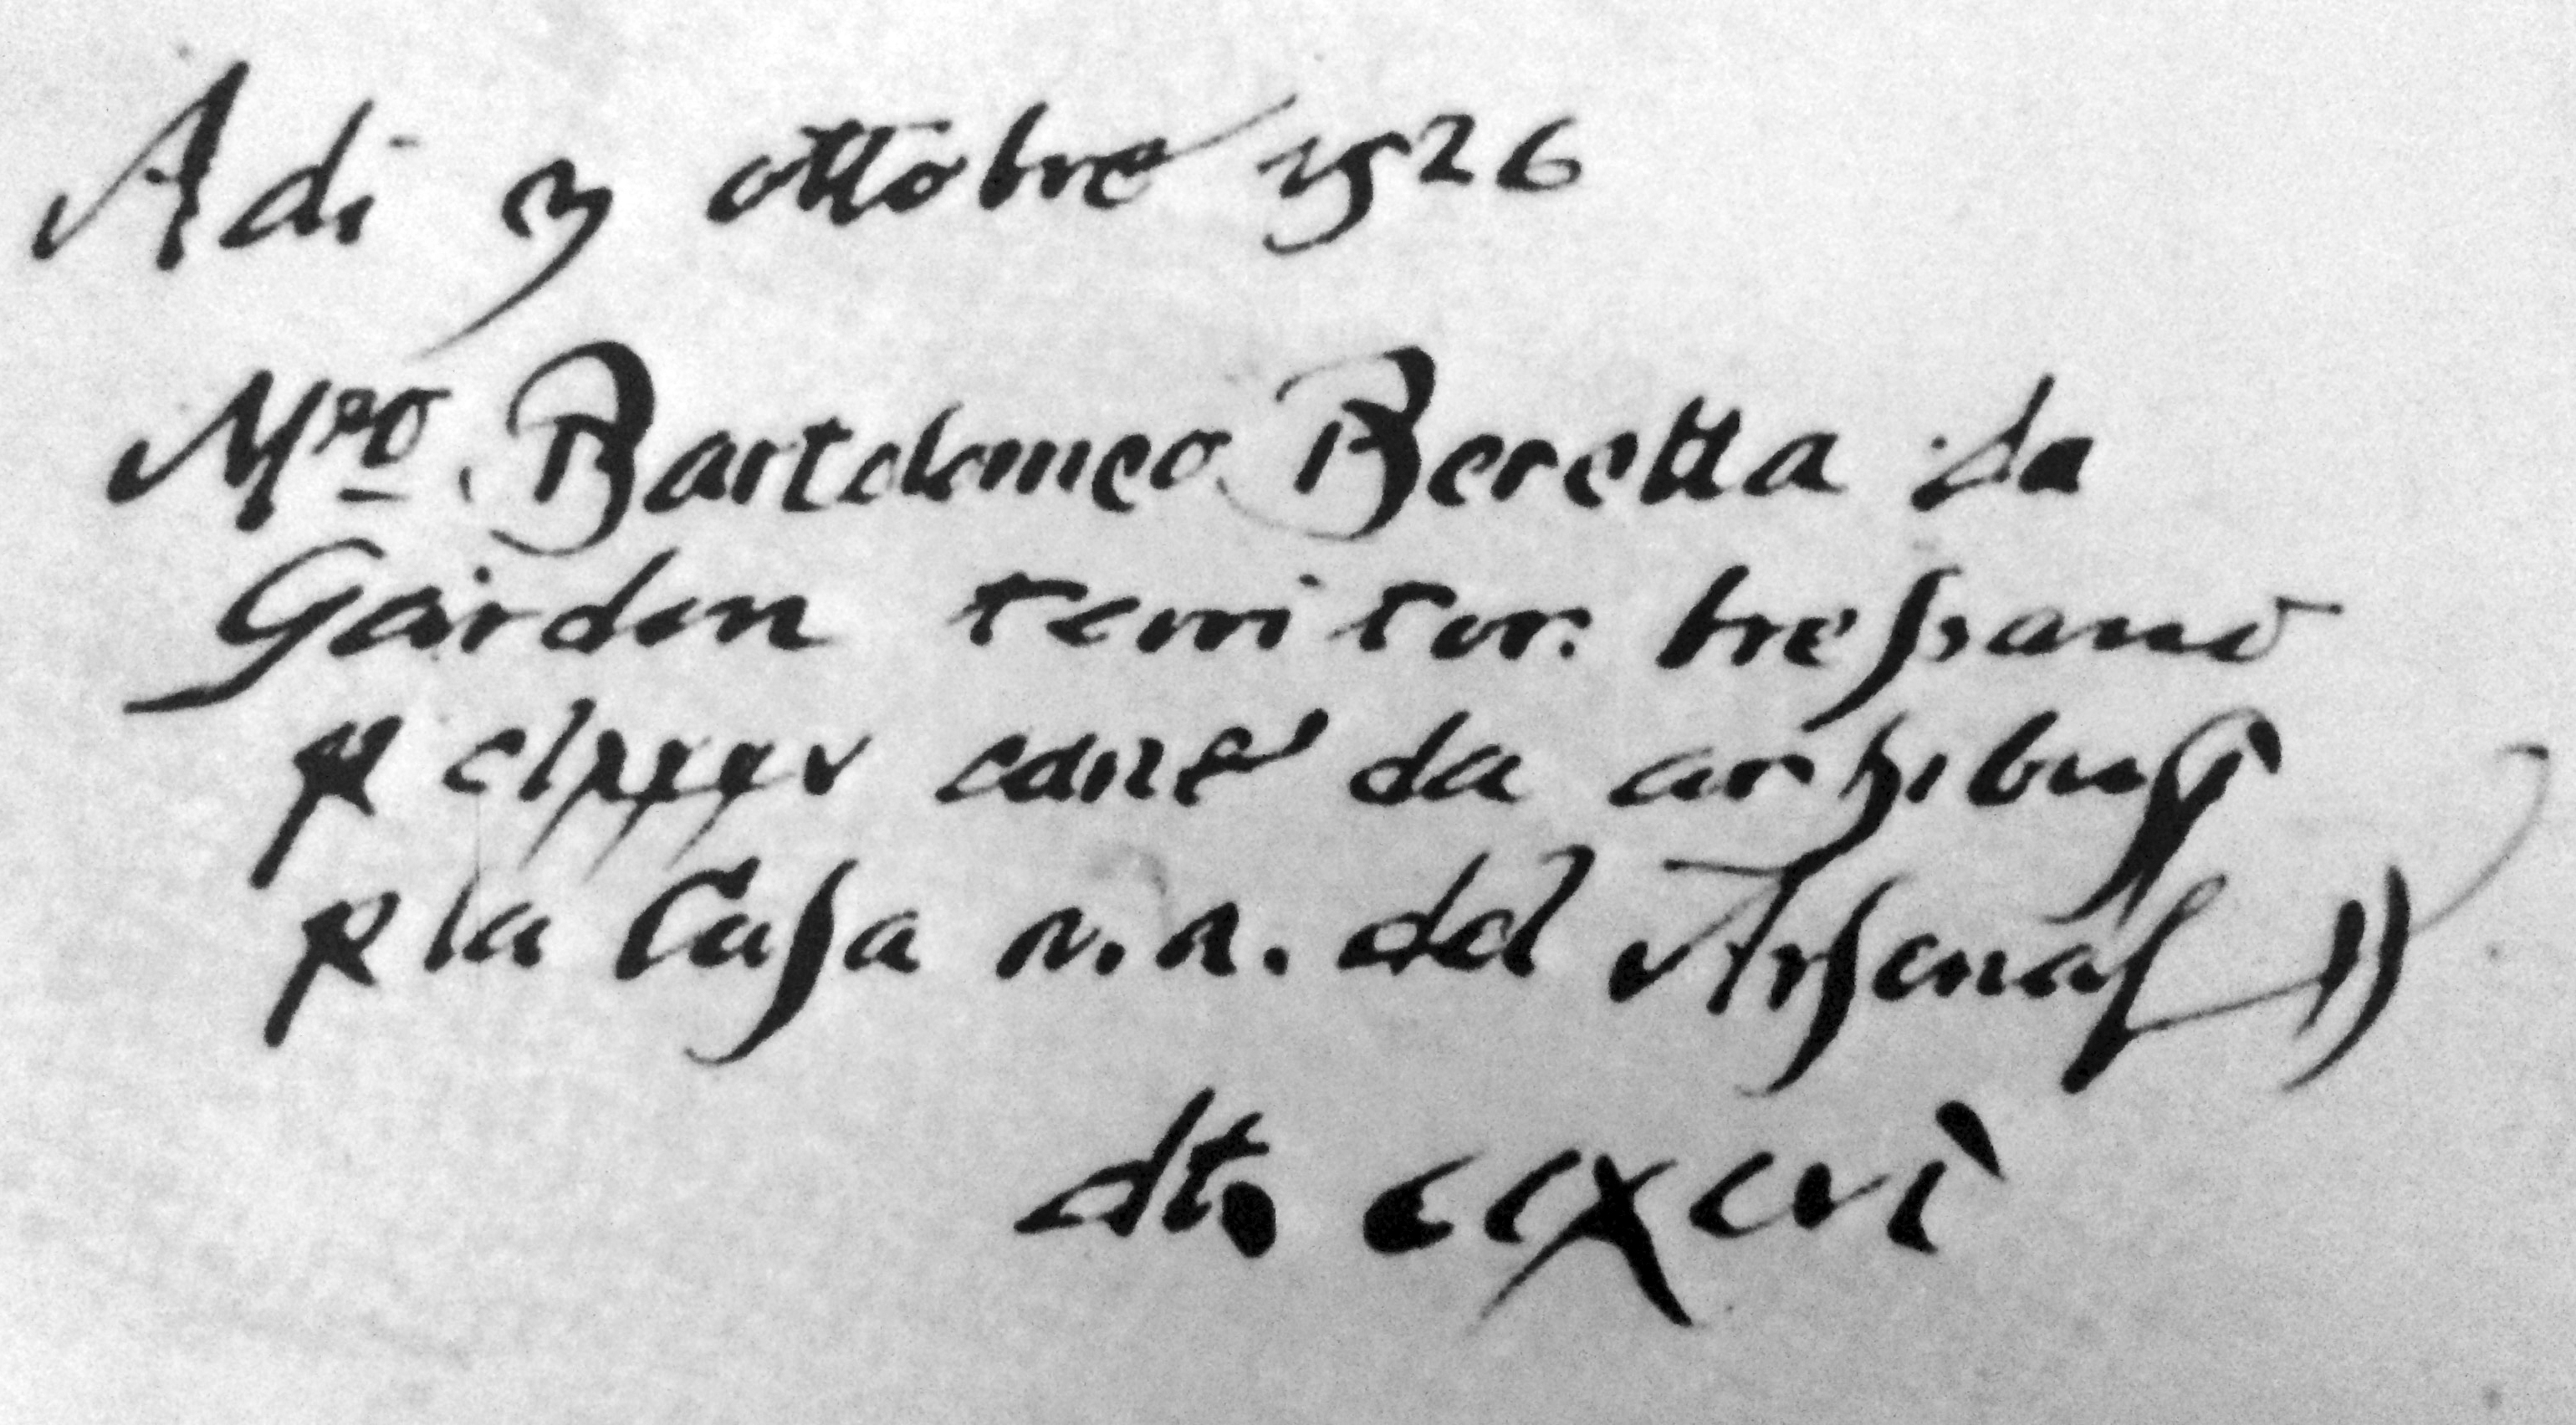 Adi 3 ottobre 1526
Mro Bartolomeo Beretta da
Gardon territor. bressano
p clxxxv cane da archibusi
p la Casa n.n. del Arsenal
dti ccxcvi